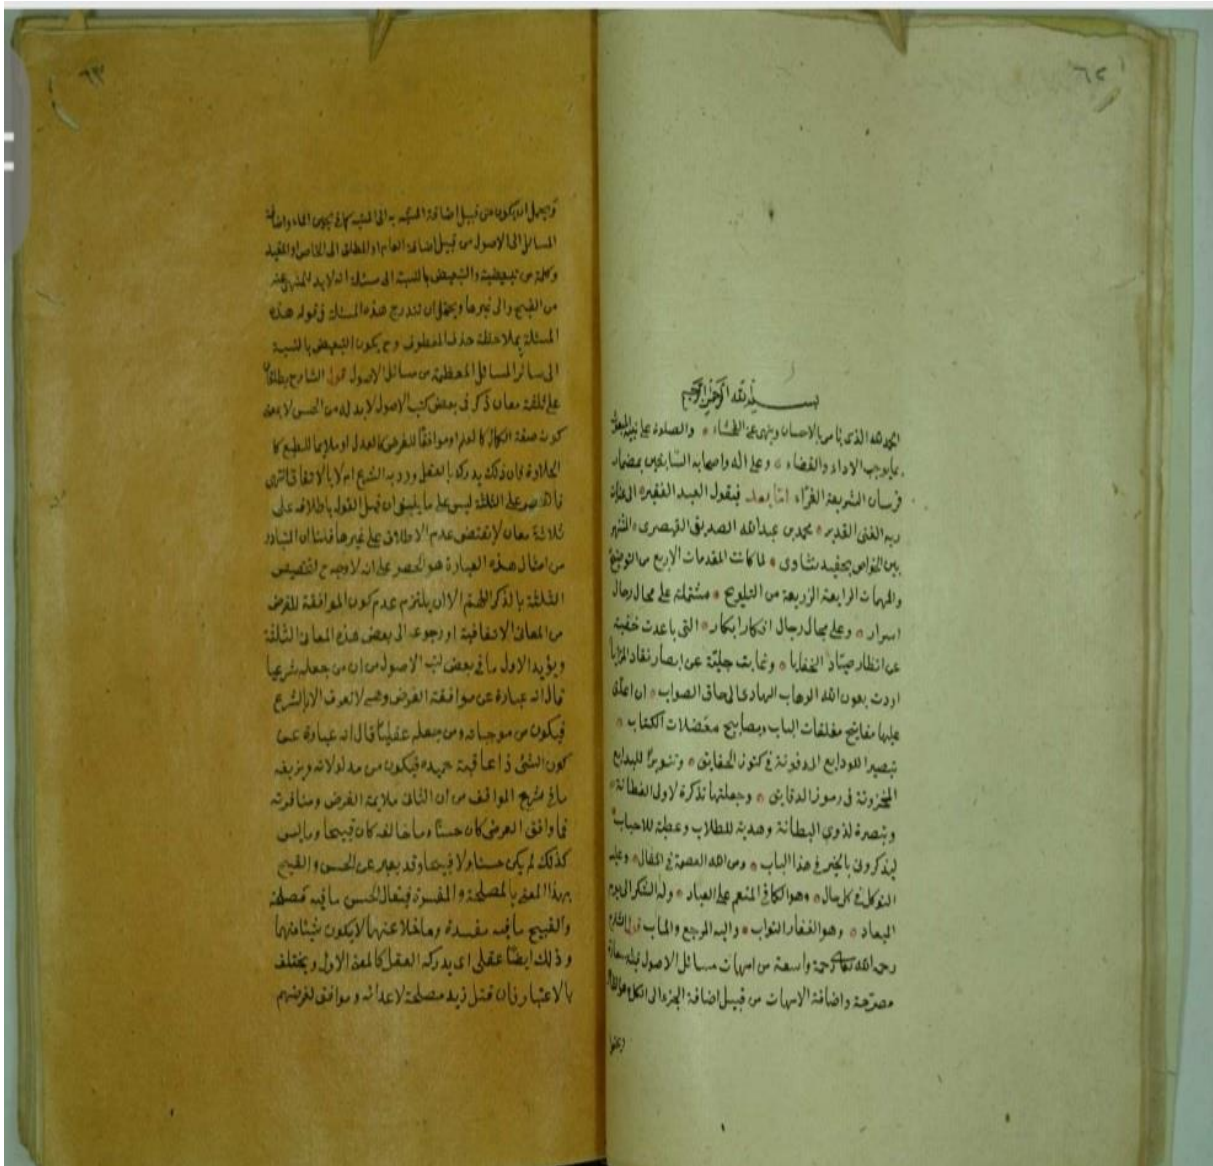 ٦٢
بسم الله الرحمن الرحيم
الحمد لله الذى يأمر بالاحسان وينهى عن الفحشاء والصلوة على نبيه المبعوث
بما يوجب الاداء والقضاء وعلى اله واصحابه السابقين بمضمار
فرسان الشريعة الغراء امّا بعد فيقول العبد الفقير الى عنايات
ربه الغنى القدير محمد بن عبد الله الصديقى القيصرى المشتهر
بين الخواص بحفيد نثارى لما كانت المقدمات الاربع من التوضيح
والمهمات الرابعة الزريعة من التلويح مشتملة على محال رحال
اسرار وعلى مجال رجال افكار ابكار التى باعدت خفية
عن انظار صيّاد الخفايا وغابت جليّة عن ابصار نقاد المزايا
اردت بعون الله الوهاب الهادى الى حاق الصواب ان اعلّق
عليها مفاتيح مغلقات الباب ومصابيح معضلات الكتاب
تبصيرا للودايع المدفونة فى كنوز الحقايق وتنويرًا للبدايع
المخزونة فى رموز الدقايق وجعلتها تذكرة لاولى الفطانة
وتبصرة لذوى البطانة وهدية للطلاب وعطية للاحباب
ليذكرونى بالخير فى هذا الباب ومن الله العصمة فى المقال وعليه
التوكل فى كل حال وهو الكافى المنعم على العباد وله الشكر الى يوم
الميعاد وهو الغفار التواب واليه المرجع والمأب قول الشارح
رحمه الله تعالى رحمة واسعة من امهات مسائل الاصول فيه استعارة
مصرّحة واضافة الامهات من قبيل اضافة الجزء الى الكل
ويحتمل
٦٣
ويحتمل ان يكون من قبيل اضافة المشبّه به الى المشبه كما فى لجين الماء واضافة
المسائل الى الاصول من قبيل اضافة العام او المطلق الى الخاص او المقيد
وكلمة من تبعيضية والتبعيض بالنسبة الى مسئلة انه لا بد للمنهى عنه
من القبح والى غيرها ويحتمل ان تندرج هذه المسئلة فى قوله هذه
المسئلة بملاحظة حذف المعطوف وح يكون التبعيض بالنسبة
الى سائر المسائل المعظمة من مسائل الاصول قول الشارح يطلقان
على ثلثة معان ذكر فى بعض كتب الاصول لا بد له من الحسن لا بمعنى
كونه صفة الكمال كالعلم او موافقًا للغرض كالعدل او ملايما للطبع كا
لحلاوة فان ذلك يدركه بالعقل ورد به الشرع ام لا بالاتفاق انتهى
فالقصر على الثلثة ليس على ما ينبغى ان قيل القول باطلاقه على
ثلاثة معان لا يقتضى عدم الاطلاق على غيرها قلنا ان المتبادر
من امثال هذه العبارة هو الحصر على انه لا وجه ح لتخصيص
الثلثة بالذكر اللهم الا ان يلتزم عدم كون الموافقة للغرض
من المعانى الاتفاقية او رجوعه الى بعض هذه المعانى الثلثة
ويؤيد الاول ما فى بعض كتب الاصول من ان من جعله شرعيا
قال انه عبارة عن موافقة الغرض وهى لا تعرف الا بالشرع
فيكون من موجباته ومن جعله عقليًا قال انه عبارة عن
كون الشئ ذا عاقبة حميدة فيكون من مدلولاته ويزيفه
ما فى شرح المواقف من ان الثانى ملايمة الغرض ومنافرته
فما وافق الغرض كان حسنًا وما خالفه كان قبيحا وما ليس
كذلك لم يكن حسنا ولا قبيحا وقد يعبر عن الحسن والقبح
بهذا المعنى بالمصلحة والمفسدة فيقال الحسن ما فيه مصلحة
والقبيح ما فيه مفسدة وما خلا عنهما لا يكون شيئا منهما
وذلك ايضًا عقلى اى يدركه العقل كالمعنى الاول ويختلف
بالاعتبار فان قتل زيد مصلحة لاعدائه وموافق لغرضهم